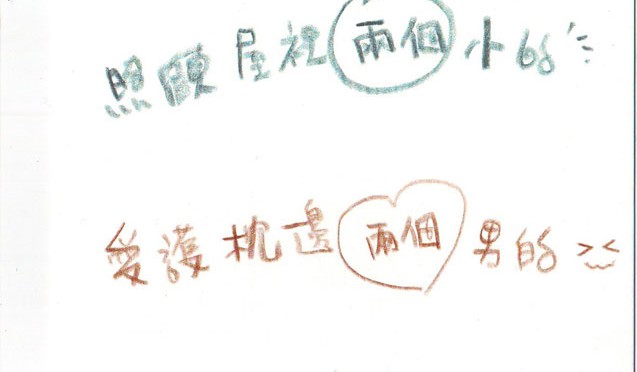 照顧屋裡兩個小的
愛護枕邊兩個男的 ><